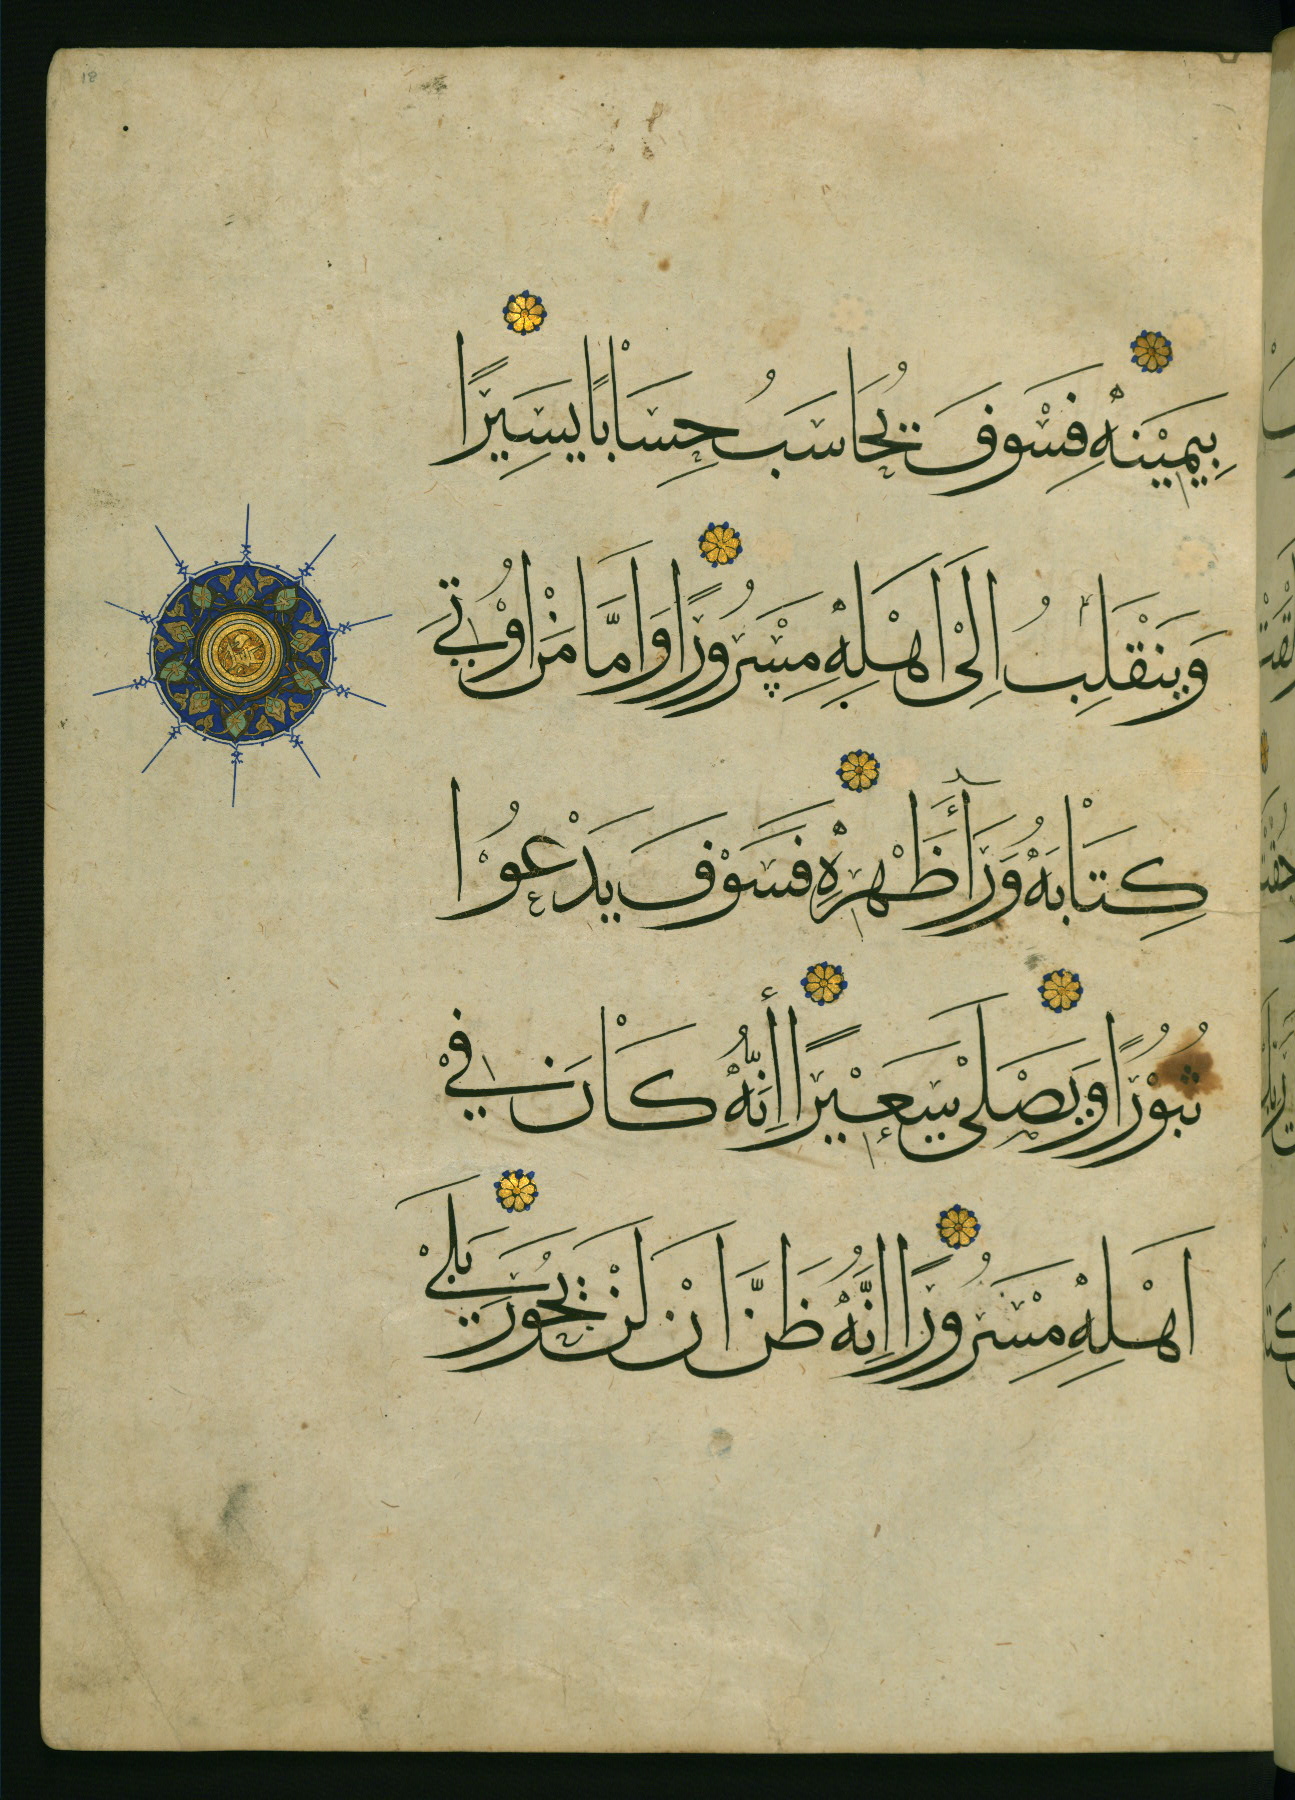 بِيَمِيْنِهٖ فَسَوْفَ يُحَاسَبُ حِسَابًا يَسِيْرًا
وَيَنْقَلِبُ اِلٰى اَهْلِهٖ مَسْرُوْرًا وَاَمَّا مَنْ اُوْتِيَ
كِتَابَهُ وَرَآءَ ظَهْرِهٖ فَسَوْفَ يَدْعُوْا
ثُبُوْرًا وَيَصْلٰى سَعِيْرًا اِنَّهُ كَانَ فِيْ
اَهْلِهٖ مَسْرُوْرًا اِنَّهُ ظَنَّ اَنْ لَنْ يَحُوْرَ بَلٰى
18